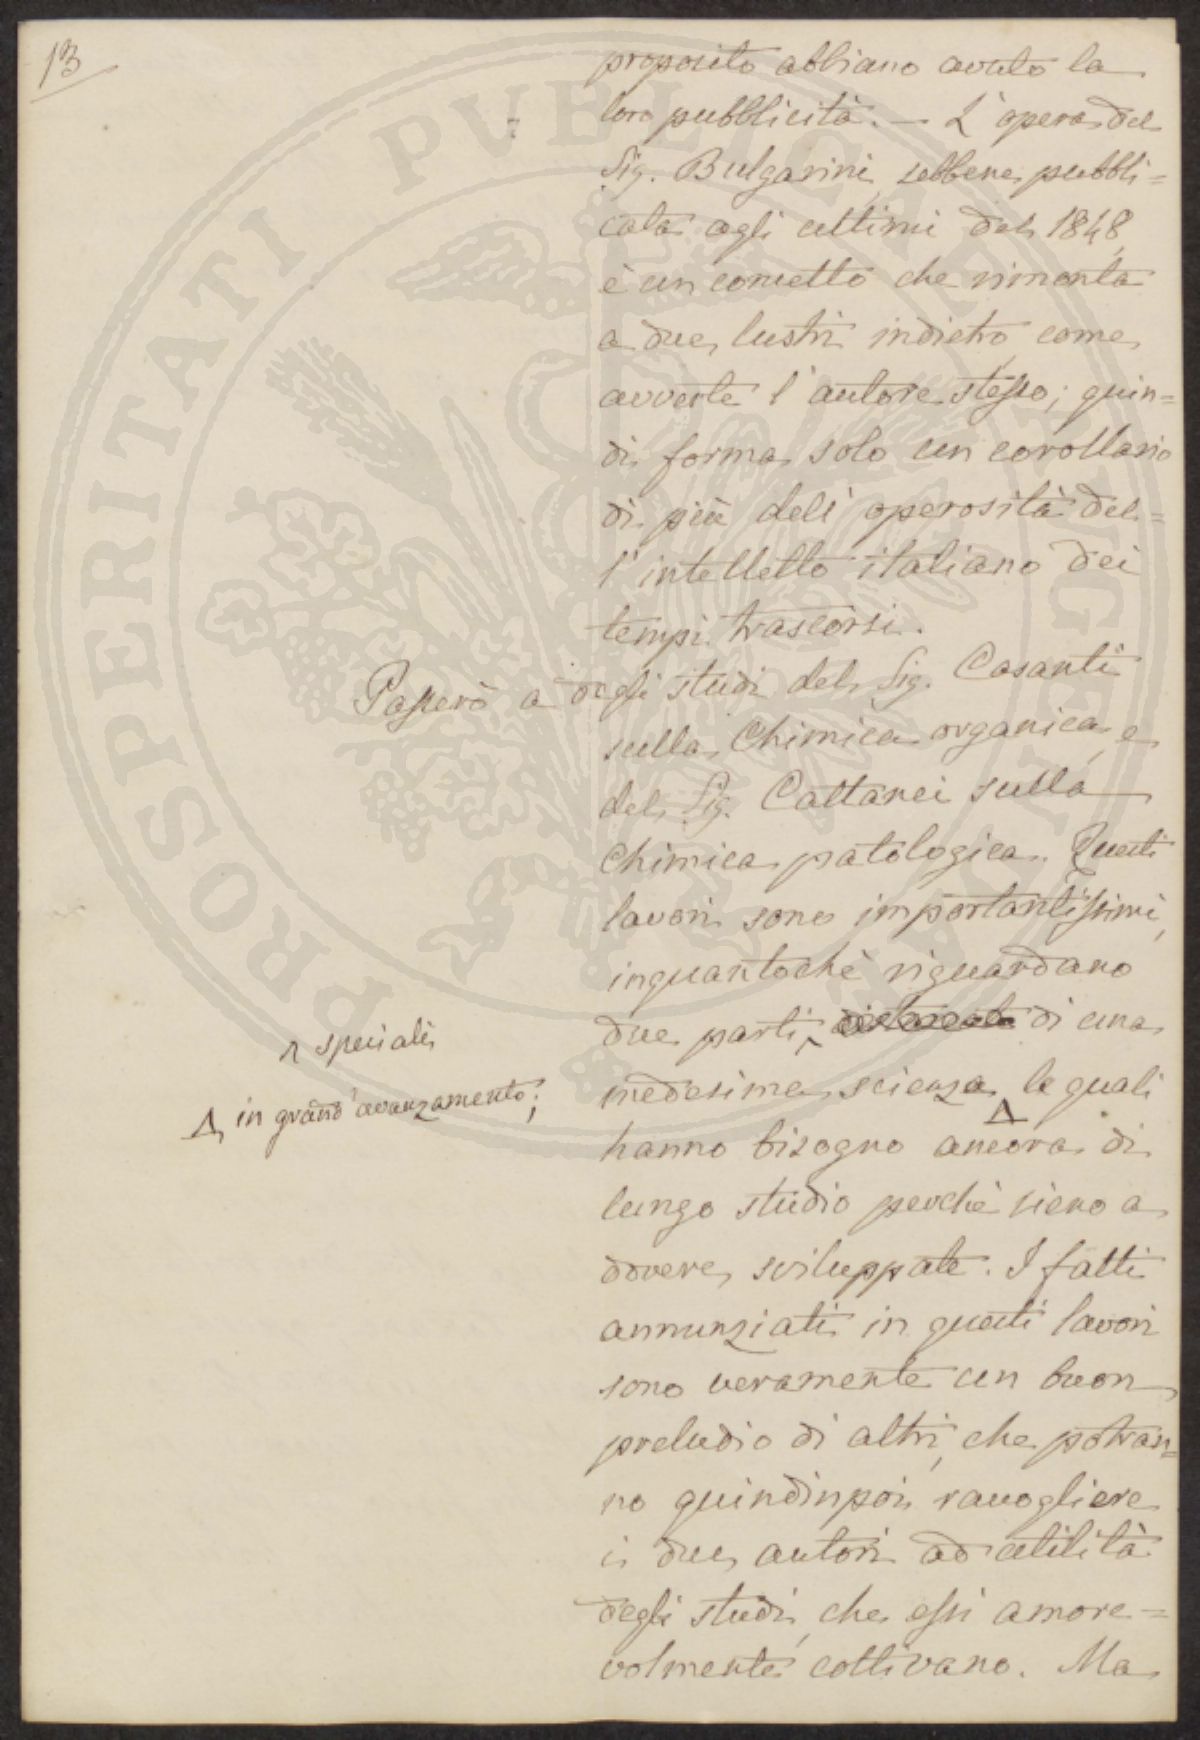 13
proposito abbiano avuto la
loro pubblicità. — L'opera del
Sig. Bulgarini, sebbene pubbli=
cata agli ultimi del 1848,
è un concetto che rimonta
a due lustri indietro, come
avverte l'autore stesso; quin=
di forma solo un corollario
di più dell'operosità del=
l'intelletto italiano dei
tempi trascorsi.
Passerò a degli studi del Sig. Casanti
sulla Chimica organica, e
del Sig. Cattanei sulla
Chimica patologica. Questi
lavori sono importantissimi,
inquantochè riguardano
due parti ^ di una
^ speciali
medesima scienza Δ le quali
Δ in grand'avanzamento;
hanno bisogno ancora di
lungo studio perchè sieno a
dovere sviluppate. I fatti
annunziati in questi lavori
sono veramente un buon
preludio di altri, che potran=
no quindinpoi raccogliere
i due autori ad utilità
degli studi, che essi amore=
volmente coltivano. Ma
PROSPERITATI PUBLICAE AUGENDAE